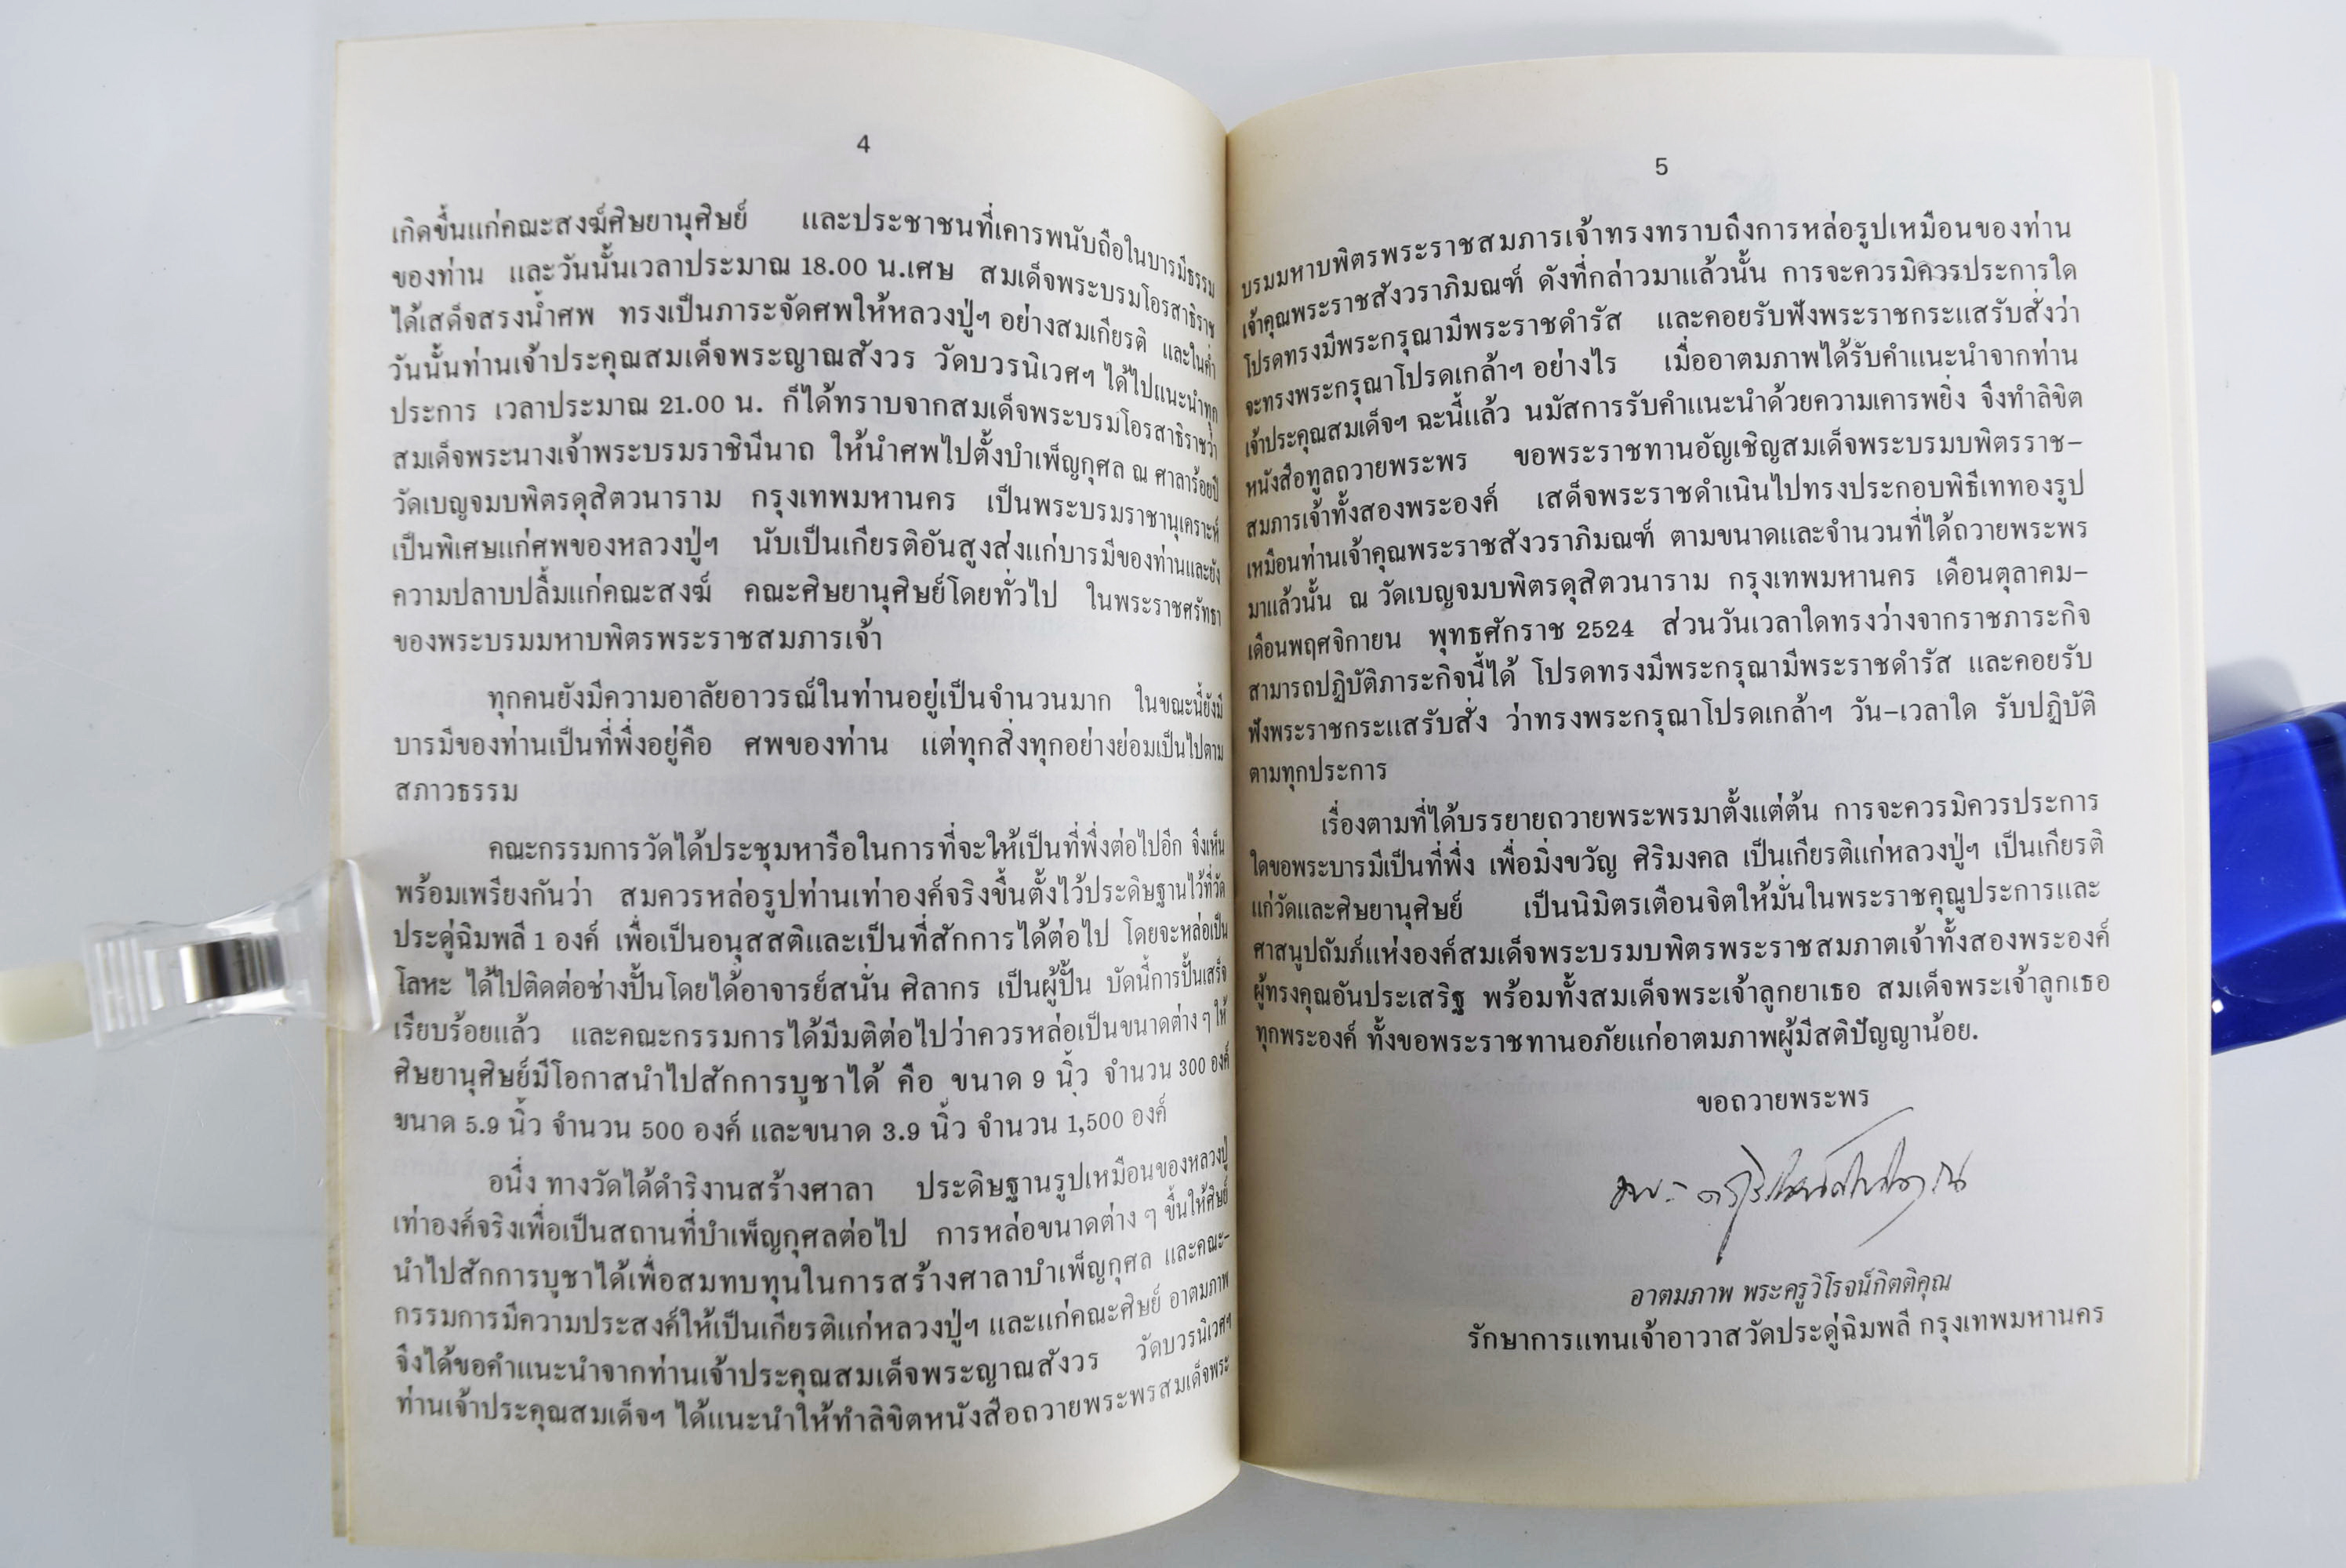 4
เกิดขึ้นแก่คณะสงฆ์ศิษยานุศิษย์ และประชาชนที่เคารพนับถือในบารมีธรรม
ของท่าน และวันนั้นเวลาประมาณ 18.00 น.เศษ สมเด็จพระบรมโอรสาธิราช
ได้เสด็จสรงน้ำศพ ทรงเป็นภาระจัดศพให้หลวงปู่ฯ อย่างสมเกียรติ และในค่ำ
วันนั้นท่านเจ้าประคุณสมเด็จพระญาณสังวร วัดบวรนิเวศฯ ได้ไปแนะนำทุก
ประการ เวลาประมาณ 21.00 น. ก็ได้ทราบจากสมเด็จพระบรมโอรสาธิราชว่า
สมเด็จพระนางเจ้าพระบรมราชินีนาถ ให้นำศพไปตั้งบำเพ็ญกุศล ณ ศาลาร้อยปี
วัดเบญจมบพิตรดุสิตวนาราม กรุงเทพมหานคร เป็นพระบรมราชานุเคราะห์
เป็นพิเศษแก่ศพของหลวงปู่ฯ นับเป็นเกียรติอันสูงส่งแก่บารมีของท่านและยัง
ความปลาบปลื้มแก่คณะสงฆ์ คณะศิษยานุศิษย์โดยทั่วไป ในพระราชศรัทธา
ของพระบรมมหาบพิตรพระราชสมภารเจ้า
ทุกคนยังมีความอาลัยอาวรณ์ในท่านอยู่เป็นจำนวนมาก ในขณะนี้ยังมี
บารมีของท่านเป็นที่พึ่งอยู่คือ ศพของท่าน แต่ทุกสิ่งทุกอย่างย่อมเป็นไปตาม
สภาวธรรม
คณะกรรมการวัดได้ประชุมหารือในการที่จะให้เป็นที่พึ่งต่อไปอีก จึงเห็น
พร้อมเพรียงกันว่า สมควรหล่อรูปท่านเท่าองค์จริงขึ้นตั้งไว้ประดิษฐานไว้ที่วัด
ประดู่ฉิมพลี 1 องค์ เพื่อเป็นอนุสสติและเป็นที่สักการได้ต่อไป โดยจะหล่อเป็น
โลหะ ได้ไปติดต่อช่างปั้นโดยได้อาจารย์สนั่น ศิลากร เป็นผู้ปั้น บัดนี้การปั้นเสร็จ
เรียบร้อยแล้ว และคณะกรรมการได้มีมติต่อไปว่าควรหล่อเป็นขนาดต่าง ๆ ให้
ศิษยานุศิษย์มีโอกาสนำไปสักการบูชาได้ คือ ขนาด 9 นิ้ว จำนวน 300 องค์
ขนาด 5.9 นิ้ว จำนวน 500 องค์ และขนาด 3.9 นิ้ว จำนวน 1,500 องค์
อนึ่ง ทางวัดได้ดำริงานสร้างศาลา ประดิษฐานรูปเหมือนของหลวงปู่
เท่าองค์จริงเพื่อเป็นสถานที่บำเพ็ญกุศลต่อไป การหล่อขนาดต่าง ๆ ขึ้นให้ศิษย์
นำไปสักการบูชาได้เพื่อสมทบทุนในการสร้างศาลาบำเพ็ญกุศล และคณะ-
กรรมการมีความประสงค์ให้เป็นเกียรติแก่หลวงปู่ฯ และแก่คณะศิษย์ อาตมภาพ
จึงได้ขอคำแนะนำจากท่านเจ้าประคุณสมเด็จพระญาณสังวร วัดบวรนิเวศฯ
ท่านเจ้าประคุณสมเด็จฯ ได้แนะนำให้ทำลิขิตหนังสือถวายพระพรสมเด็จพระ
5
บรมมหาบพิตรพระราชสมภารเจ้าทรงทราบถึงการหล่อรูปเหมือนของท่าน
เจ้าคุณพระราชสังวราภิมณฑ์ ดังที่กล่าวมาแล้วนั้น การจะควรมิควรประการใด
โปรดทรงมีพระกรุณามีพระราชดำรัส และคอยรับฟังพระราชกระแสรับสั่งว่า
จะทรงพระกรุณาโปรดเกล้าฯ อย่างไร เมื่ออาตมภาพได้รับคำแนะนำจากท่าน
เจ้าประคุณสมเด็จฯ ฉะนี้แล้ว นมัสการรับคำแนะนำด้วยความเคารพยิ่ง จึงทำลิขิต
หนังสือทูลถวายพระพร ขอพระราชทานอัญเชิญสมเด็จพระบรมบพิตรราช-
สมภารเจ้าทั้งสองพระองค์ เสด็จพระราชดำเนินไปทรงประกอบพิธีเททองรูป
เหมือนท่านเจ้าคุณพระราชสังวราภิมณฑ์ ตามขนาดและจำนวนที่ได้ถวายพระพร
มาแล้วนั้น ณ วัดเบญจมบพิตรดุสิตวนาราม กรุงเทพมหานคร เดือนตุลาคม-
เดือนพฤศจิกายน พุทธศักราช 2524 ส่วนวันเวลาใดทรงว่างจากราชภาระกิจ
สามารถปฏิบัติภาระกิจนี้ได้ โปรดทรงมีพระกรุณามีพระราชดำรัส และคอยรับ
ฟังพระราชกระแสรับสั่ง ว่าทรงพระกรุณาโปรดเกล้าฯ วัน-เวลาใด รับปฏิบัติ
ตามทุกประการ
เรื่องตามที่ได้บรรยายถวายพระพรมาตั้งแต่ต้น การจะควรมิควรประการ
ใดขอพระบารมีเป็นที่พึ่ง เพื่อมิ่งขวัญ ศิริมงคล เป็นเกียรติแก่หลวงปู่ฯ เป็นเกียรติ
แก่วัดและศิษยานุศิษย์ เป็นนิมิตรเตือนจิตให้มั่นในพระราชคุณูประการและ
ศาสนูปถัมภ์แห่งองค์สมเด็จพระบรมบพิตรพระราชสมภาตเจ้าทั้งสองพระองค์
ผู้ทรงคุณอันประเสริฐ พร้อมทั้งสมเด็จพระเจ้าลูกยาเธอ สมเด็จพระเจ้าลูกเธอ
ทุกพระองค์ ทั้งขอพระราชทานอภัยแก่อาตมภาพผู้มีสติปัญญาน้อย.
ขอถวายพระพร
อาตมภาพ พระครูวิโรจน์กิตติคุณ
รักษาการแทนเจ้าอาวาสวัดประดู่ฉิมพลี กรุงเทพมหานคร